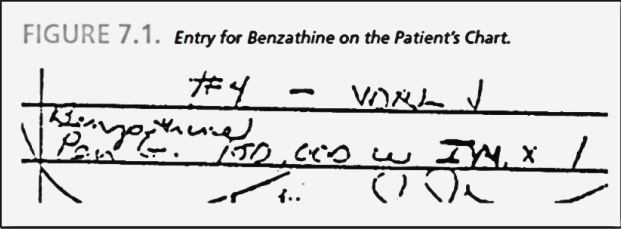 FIGURE 7.1. Entry for Benzathine on the Patient's Chart.
#4 - VDRL ↓
Benzathine
Pen G 150,000 u IM x 1